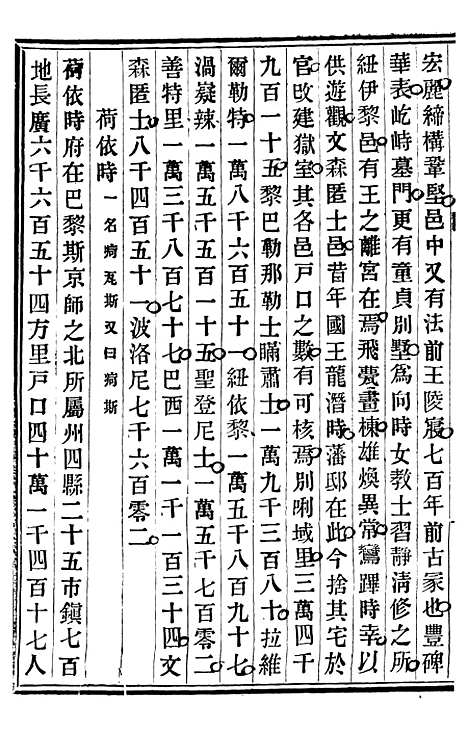 宏麗締構鞏堅邑中又有法前王陵寢七百年前古冢也豐碑
華表屹峙墓門更有童貞別墅爲向時女教士習靜清修之所
紐伊黎邑有王之離宮在焉飛甍畫棟雄煥異常鸞蹕時幸以
供遊觀文森匿士邑昔年國王龍潛時藩邸在此今捨其宅於
官改建獄室其各邑戸口之數有可核焉別唎域里三萬四千
九百一十五黎巴勒那勒士瞞肅士一萬九千三百八十拉維
爾勒特一萬八千六百五十一紐依黎一萬五千八百九十七
渦疑辣一萬五千五百一十五聖登尼士一萬五千七百零二
善特里一萬三千八百七十七巴西一萬一千一百三十四文
森匿士八千四百五十一波洛尼七千六百零二
荷依時 一名痾瓦斯又曰痾斯
荷依時府在巴黎斯京師之北所屬州四縣二十五市鎮七百
地長廣六千六百五十四方里戸口四十萬一千四百十七人